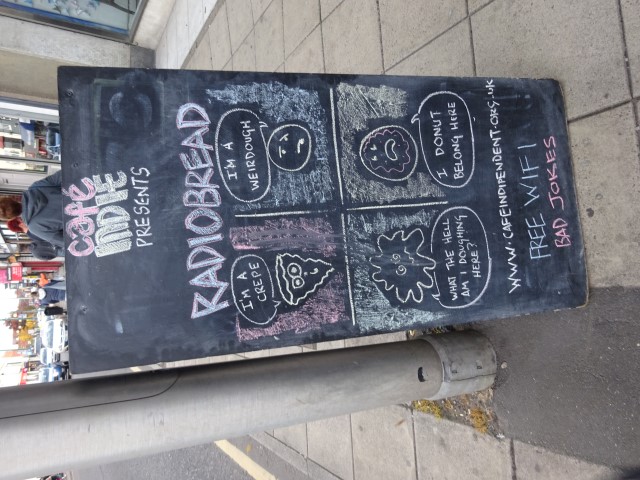 CAFÉ
INDIE
PRESENTS
RADIOBREAD
I'M A
CREPE
I'M A
WEIRDOUGH
WHAT THE HELL
AM I DOUGHING
HERE?
I DONUT
BELONG HERE
WWW.CAFEINDIPENDENT.ORG.UK
FREE WIFI
BAD JOKES